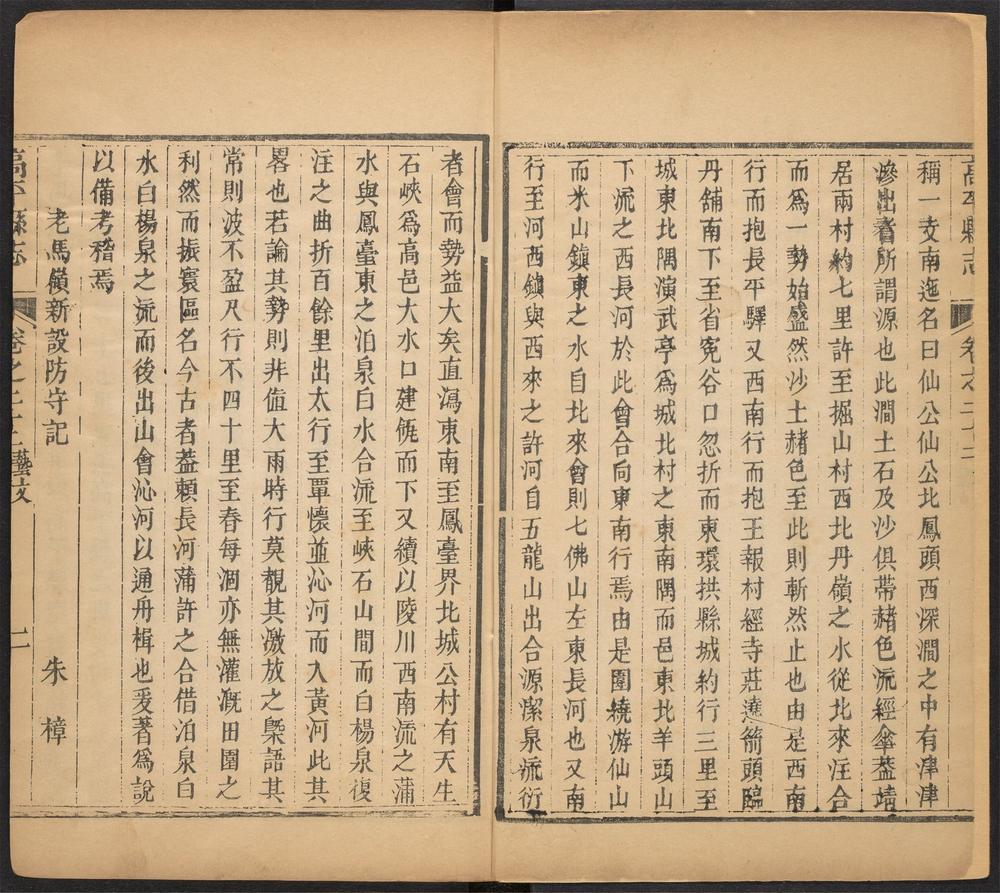 高平縣志
卷之二十二
稱一支南迤名曰仙公仙公北鳳頭西深澗之中有津津
滲出者所謂源也此澗土石及沙俱帶赭色流經傘葢靖
居兩村約七里許至掘山村西北丹嶺之水從北來注合
而爲一勢始盛然沙土赭色至此則斬然止也由是西南
行而抱長平驛又西南行而抱王報村經寺莊遶箭頭臨
丹舖南下至省寃谷口忽折而東環拱縣城約行三里至
城東北隅演武亭爲城北村之東南隅而邑東北羊頭山
下流之西長河於此會合向東南行焉由是圍繞游仙山
而米山鎮東之水自北來會則七佛山左東長河也又南
行至河西鎮與西來之許河自五龍山出合源潔泉流衍
者會而勢益大矣直瀉東南至鳳臺界北城公村有天生
石峽爲高邑大水口建瓴而下又續以陵川西南流之蒲
水與鳳臺東之泊泉白水合流至峽石山間而白楊泉復
注之曲折百餘里出太行至覃懷並沁河而入黃河此其
畧也若論其勢則非值大雨時行莫覩其激放之槩語其
常則波不盈尺行不四十里至春每涸亦無灌溉田園之
利然而振寰區名今古者葢賴長河蒲許之合借泊泉白
水白楊泉之流而後出山會沁河以通舟楫也爰著爲說
以備考稽焉
老馬嶺新設防守記
朱樟
高平縣志
卷之二十二藝文